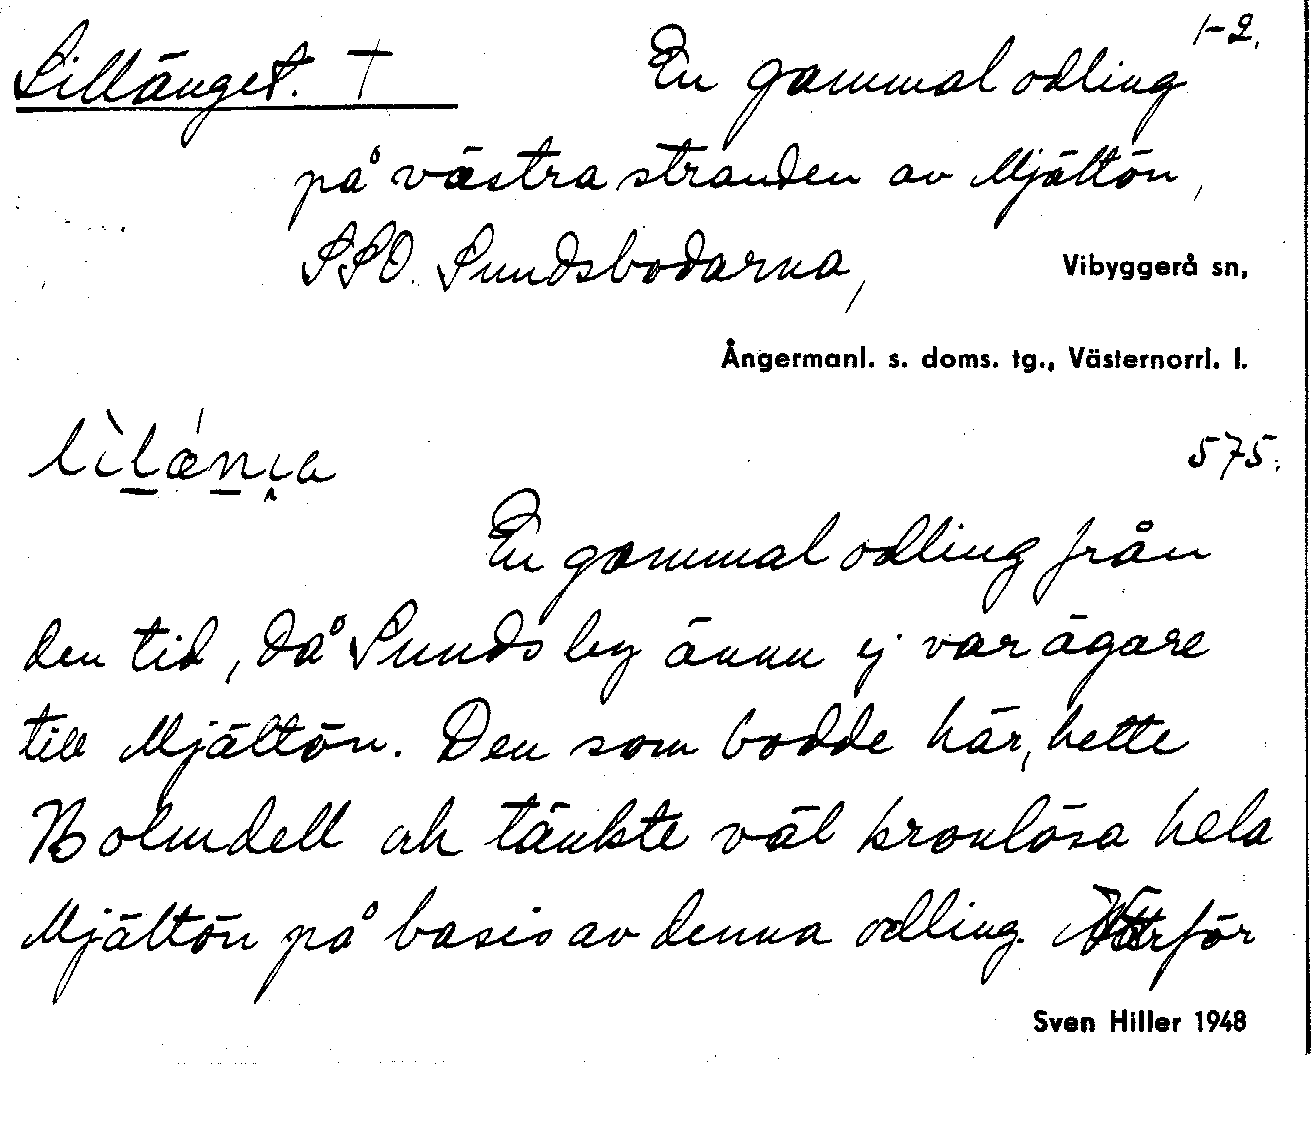 1-2.
Lillänget. † En gammal odling
på västra stranden av Mjältön,
SSO. Sundsbodarna,
Vibyggerå sn,
Ångermanl. s. doms. tg., Västernorrl. l.
575.
En gammal odling från
den tid, då Sunds by ännu ej var ägare
till Mjältön. Den som bodde här, hette
Bolmdell och tänkte väl kronlösa hela
Mjältön på basis av denna odling. för
Sven Hiller 1948